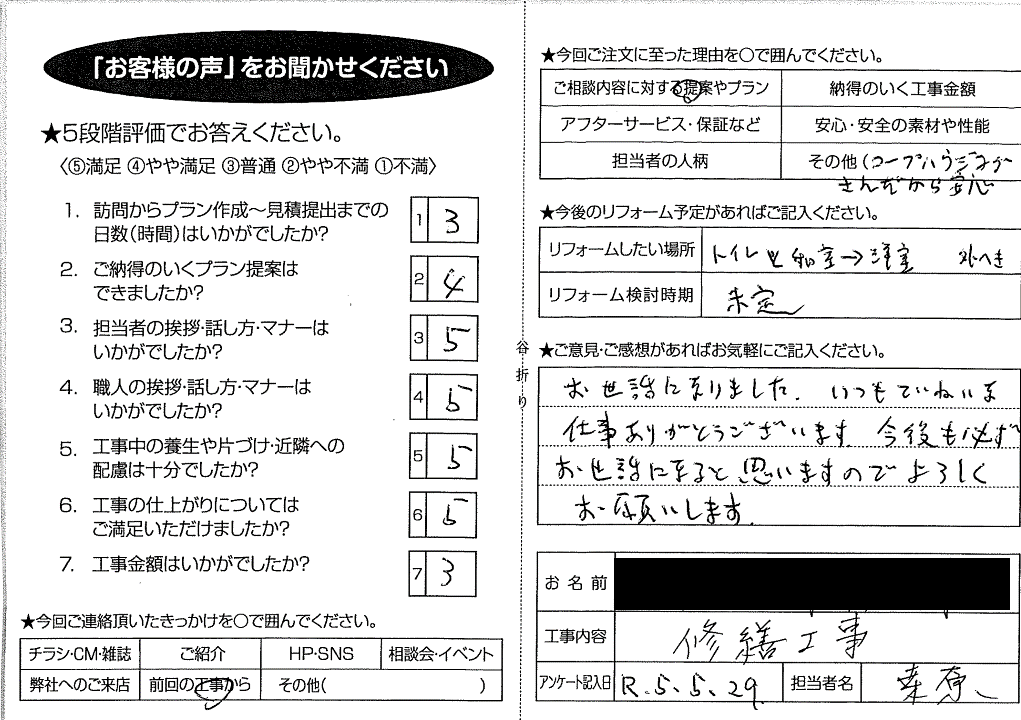 「お客様の声」をお聞かせください
★5段階評価でお答えください。
〈⑤満足 ④やや満足 ③普通 ②やや不満 ①不満〉
1. 訪問からプラン作成〜見積提出までの
日数(時間)はいかがでしたか?
1 3
2. ご納得のいくプラン提案は
できましたか?
2 4
3. 担当者の挨拶・話し方・マナーは
いかがでしたか?
3 5
4. 職人の挨拶・話し方・マナーは
いかがでしたか?
4 5
5. 工事中の養生や片づけ・近隣への
配慮は十分でしたか?
5 5
6. 工事の仕上がりについては
ご満足いただけましたか?
6 5
7. 工事金額はいかがでしたか?
7 3
★今回ご連絡頂いたきっかけを○で囲んでください。
チラシ・CM・雑誌 ご紹介 HP・SNS 相談会・イベント
弊社へのご来店 前回の工事から その他( )
谷折り
★今回ご注文に至った理由を○で囲んでください。
ご相談内容に対する提案やプラン 納得のいく工事金額
アフターサービス・保証など 安心・安全の素材や性能
担当者の人柄 その他(コープハウジング
さんだから安心
★今後のリフォーム予定があればご記入ください。
リフォームしたい場所 トイレと和室→洋室 外へき
リフォーム検討時期 未定
★ご意見・ご感想があればお気軽にご記入ください。
お世話になりました。いつもていねいな
仕事ありがとうございます。今後も必ず
お世話になると思いますのでよろしく
お願いします。
お名前
工事内容 修繕工事
アンケート記入日 R.5.5.29 担当者名 桒原